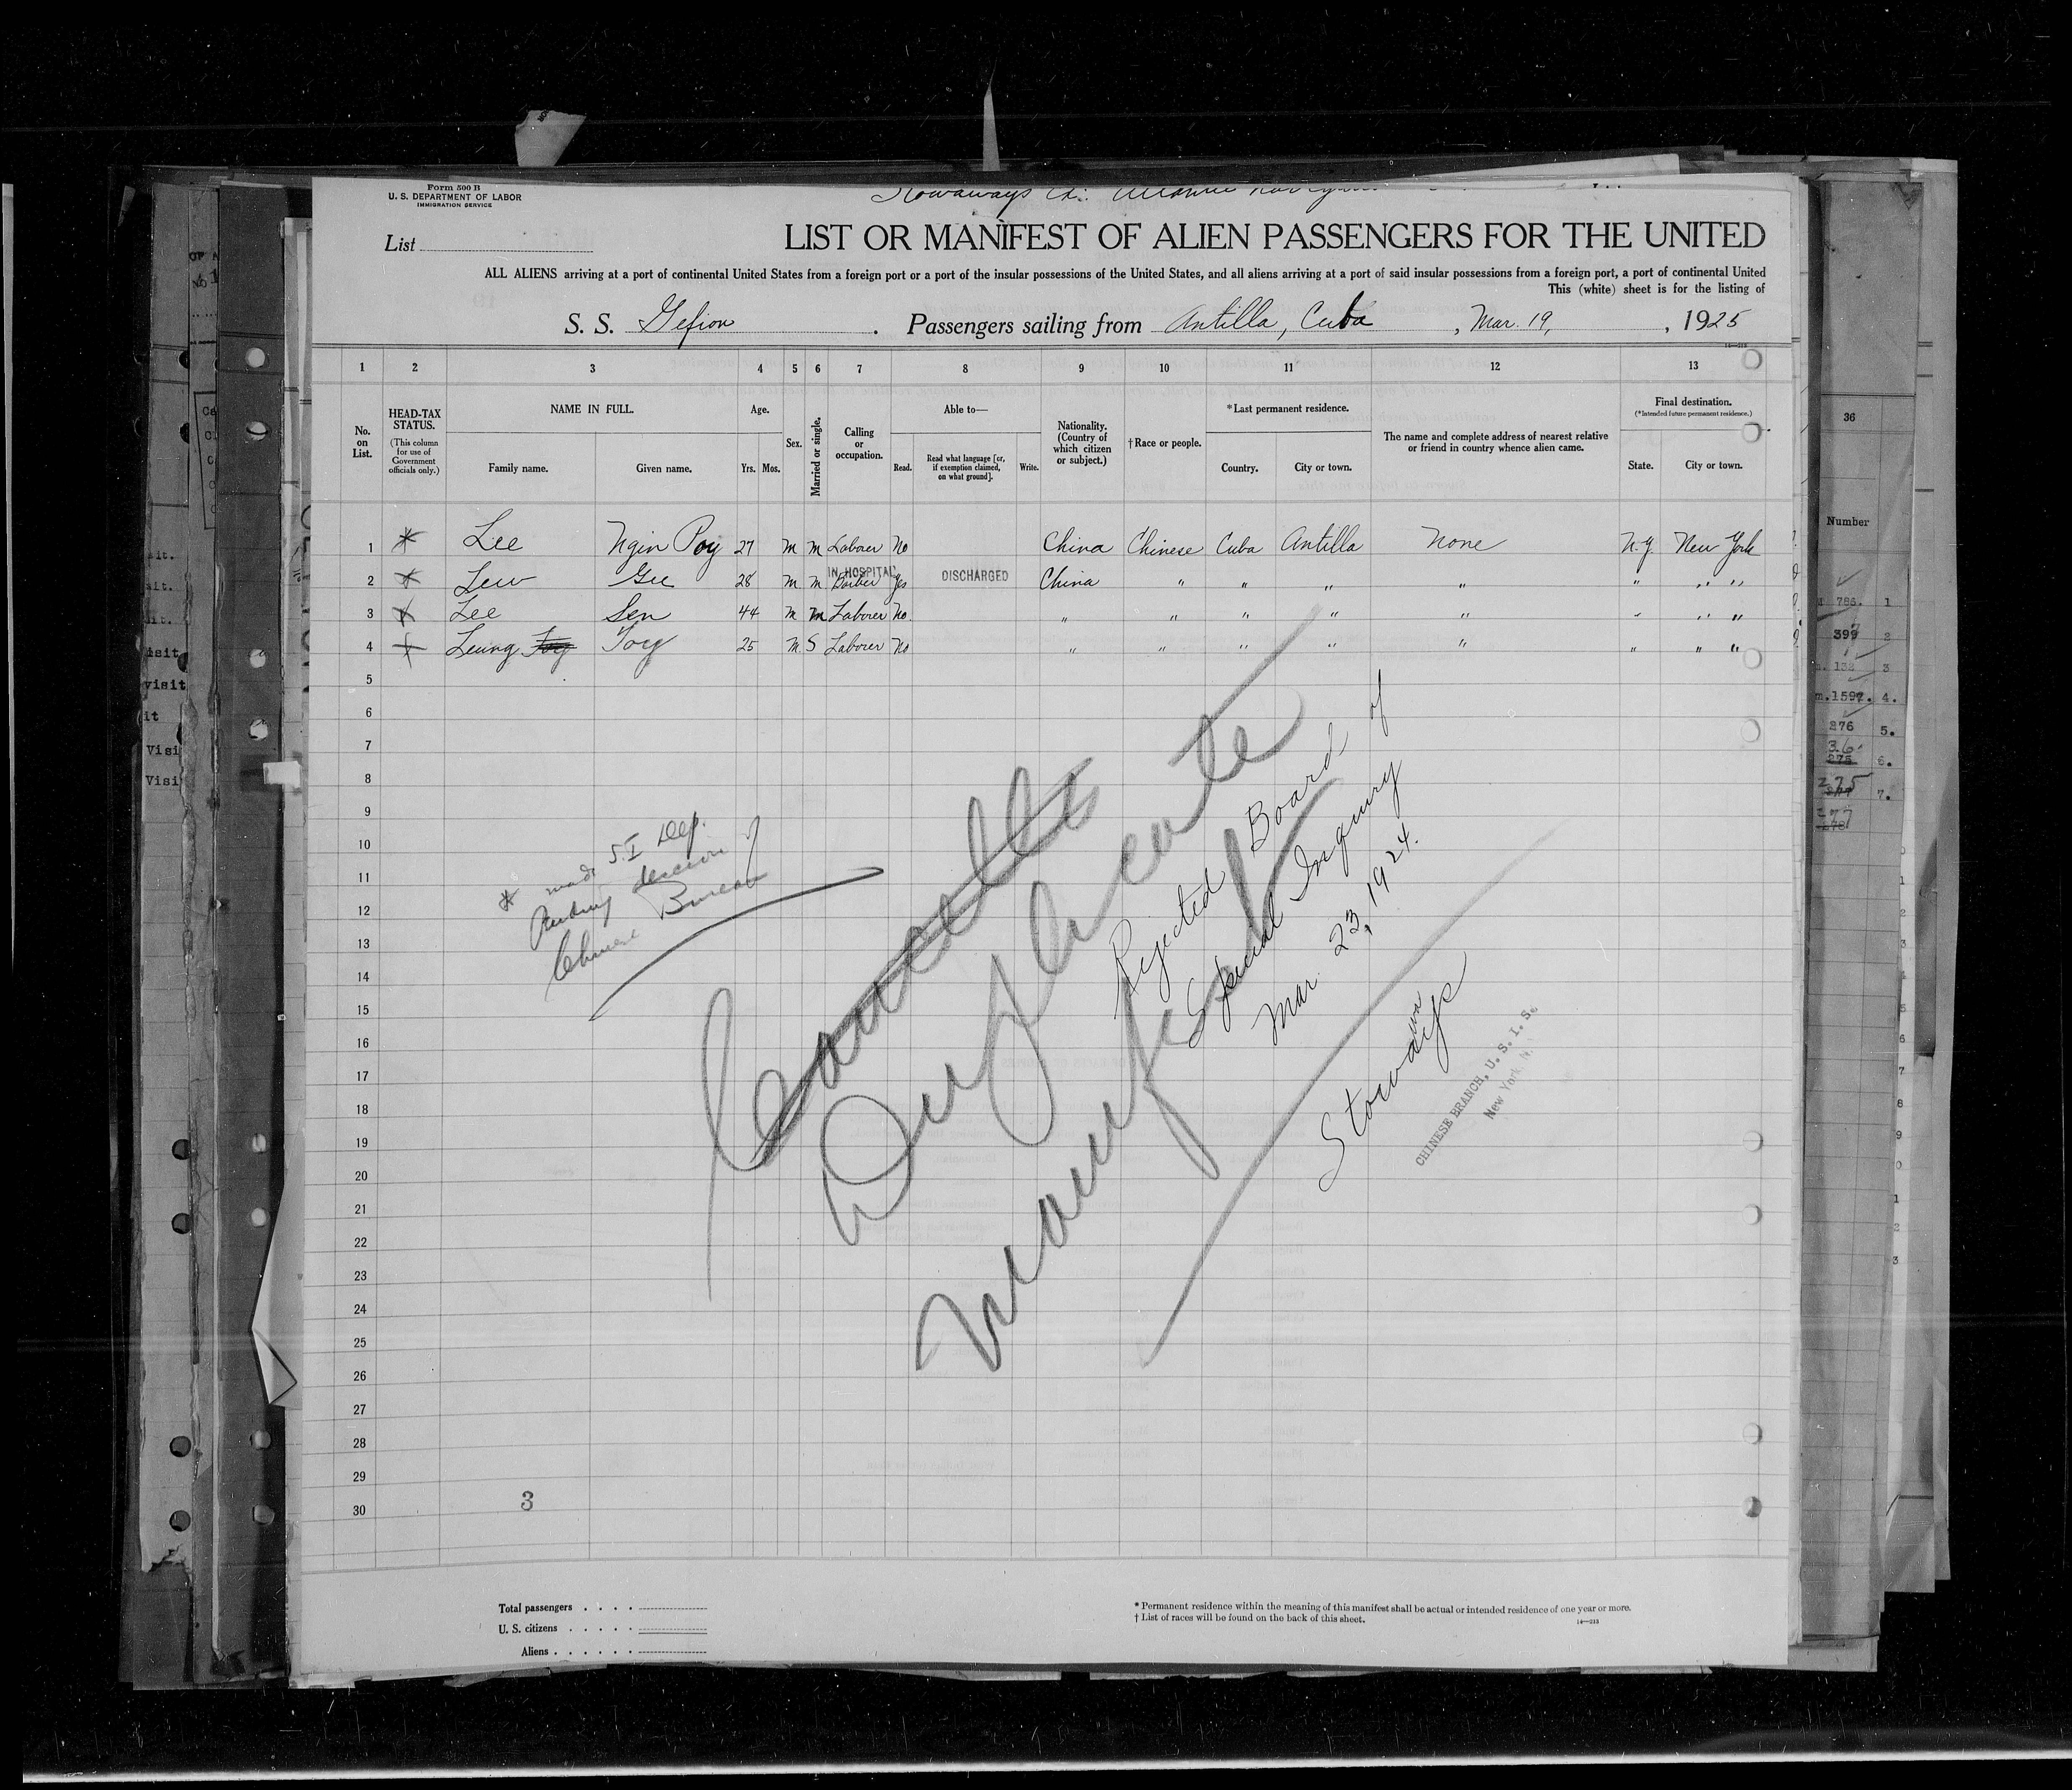 Form 500 B
U. S. DEPARTMENT OF LABOR
IMMIGRATION SERVICE
Stowaways
List
LIST OR MANIFEST OF ALIEN PASSENGERS FOR THE UNITED
ALL ALIENS arriving at a port of continental United States from a foreign port or a port of the insular possessions of the United States, and all aliens arriving at a port of said insular possessions from a foreign port, a port of continental United
This (white) sheet is for the listing of
S. S. Gefion . Passengers sailing from Antilla, Cuba , Mar. 19, , 1925
1 2 3 4 5 6 7 8 9 10 11 12 13
No. on List.
HEAD-TAX STATUS.
(This column for use of Government officials only.)
NAME IN FULL.
Family name. Given name.
Age.
Yrs. Mos.
Sex.
Married or single.
Calling or occupation.
Able to—
Read. Read what language [or, if exemption claimed, on what ground]. Write.
Nationality. (Country of which citizen or subject.)
†Race or people.
*Last permanent residence.
Country. City or town.
The name and complete address of nearest relative or friend in country whence alien came.
Final destination.
(*Intended future permanent residence.)
State. City or town.
1 Lee Ngin Poy 27 m m Laborer No China Chinese Cuba Antilla None N.Y. New York
IN HOSPITAL DISCHARGED
2 Lew Gee 28 m m Barber Yes China " " " " " " "
3 Lee Sen 44 m m Laborer No. " " " " " " " "
4 Leung Foy Tory 25 m S Laborer No " " " " " " " "
5
6
7
8
9
10
11
12
13
14
15
16
17
18
19
20
21
22
23
24
25
26
27
28
29
30
* made S.I Dep.
Pending decision of
Chinese Bureau
Duplicate
Manif
Rejected Board of
Special Inquiry
Mar 23, 1924.
Stowaways
CHINESE BRANCH, U. S. I. S.
New York N.
3
Total passengers . . . .
U. S. citizens . . . . .
Aliens . . . . . .
* Permanent residence within the meaning of this manifest shall be actual or intended residence of one year or more.
† List of races will be found on the back of this sheet.
14—213
visit
it
Visi
Visi
36
Number
786. 1
399 2
132 3
m.1597. 4.
276 5.
36. 6.
275 7.
277